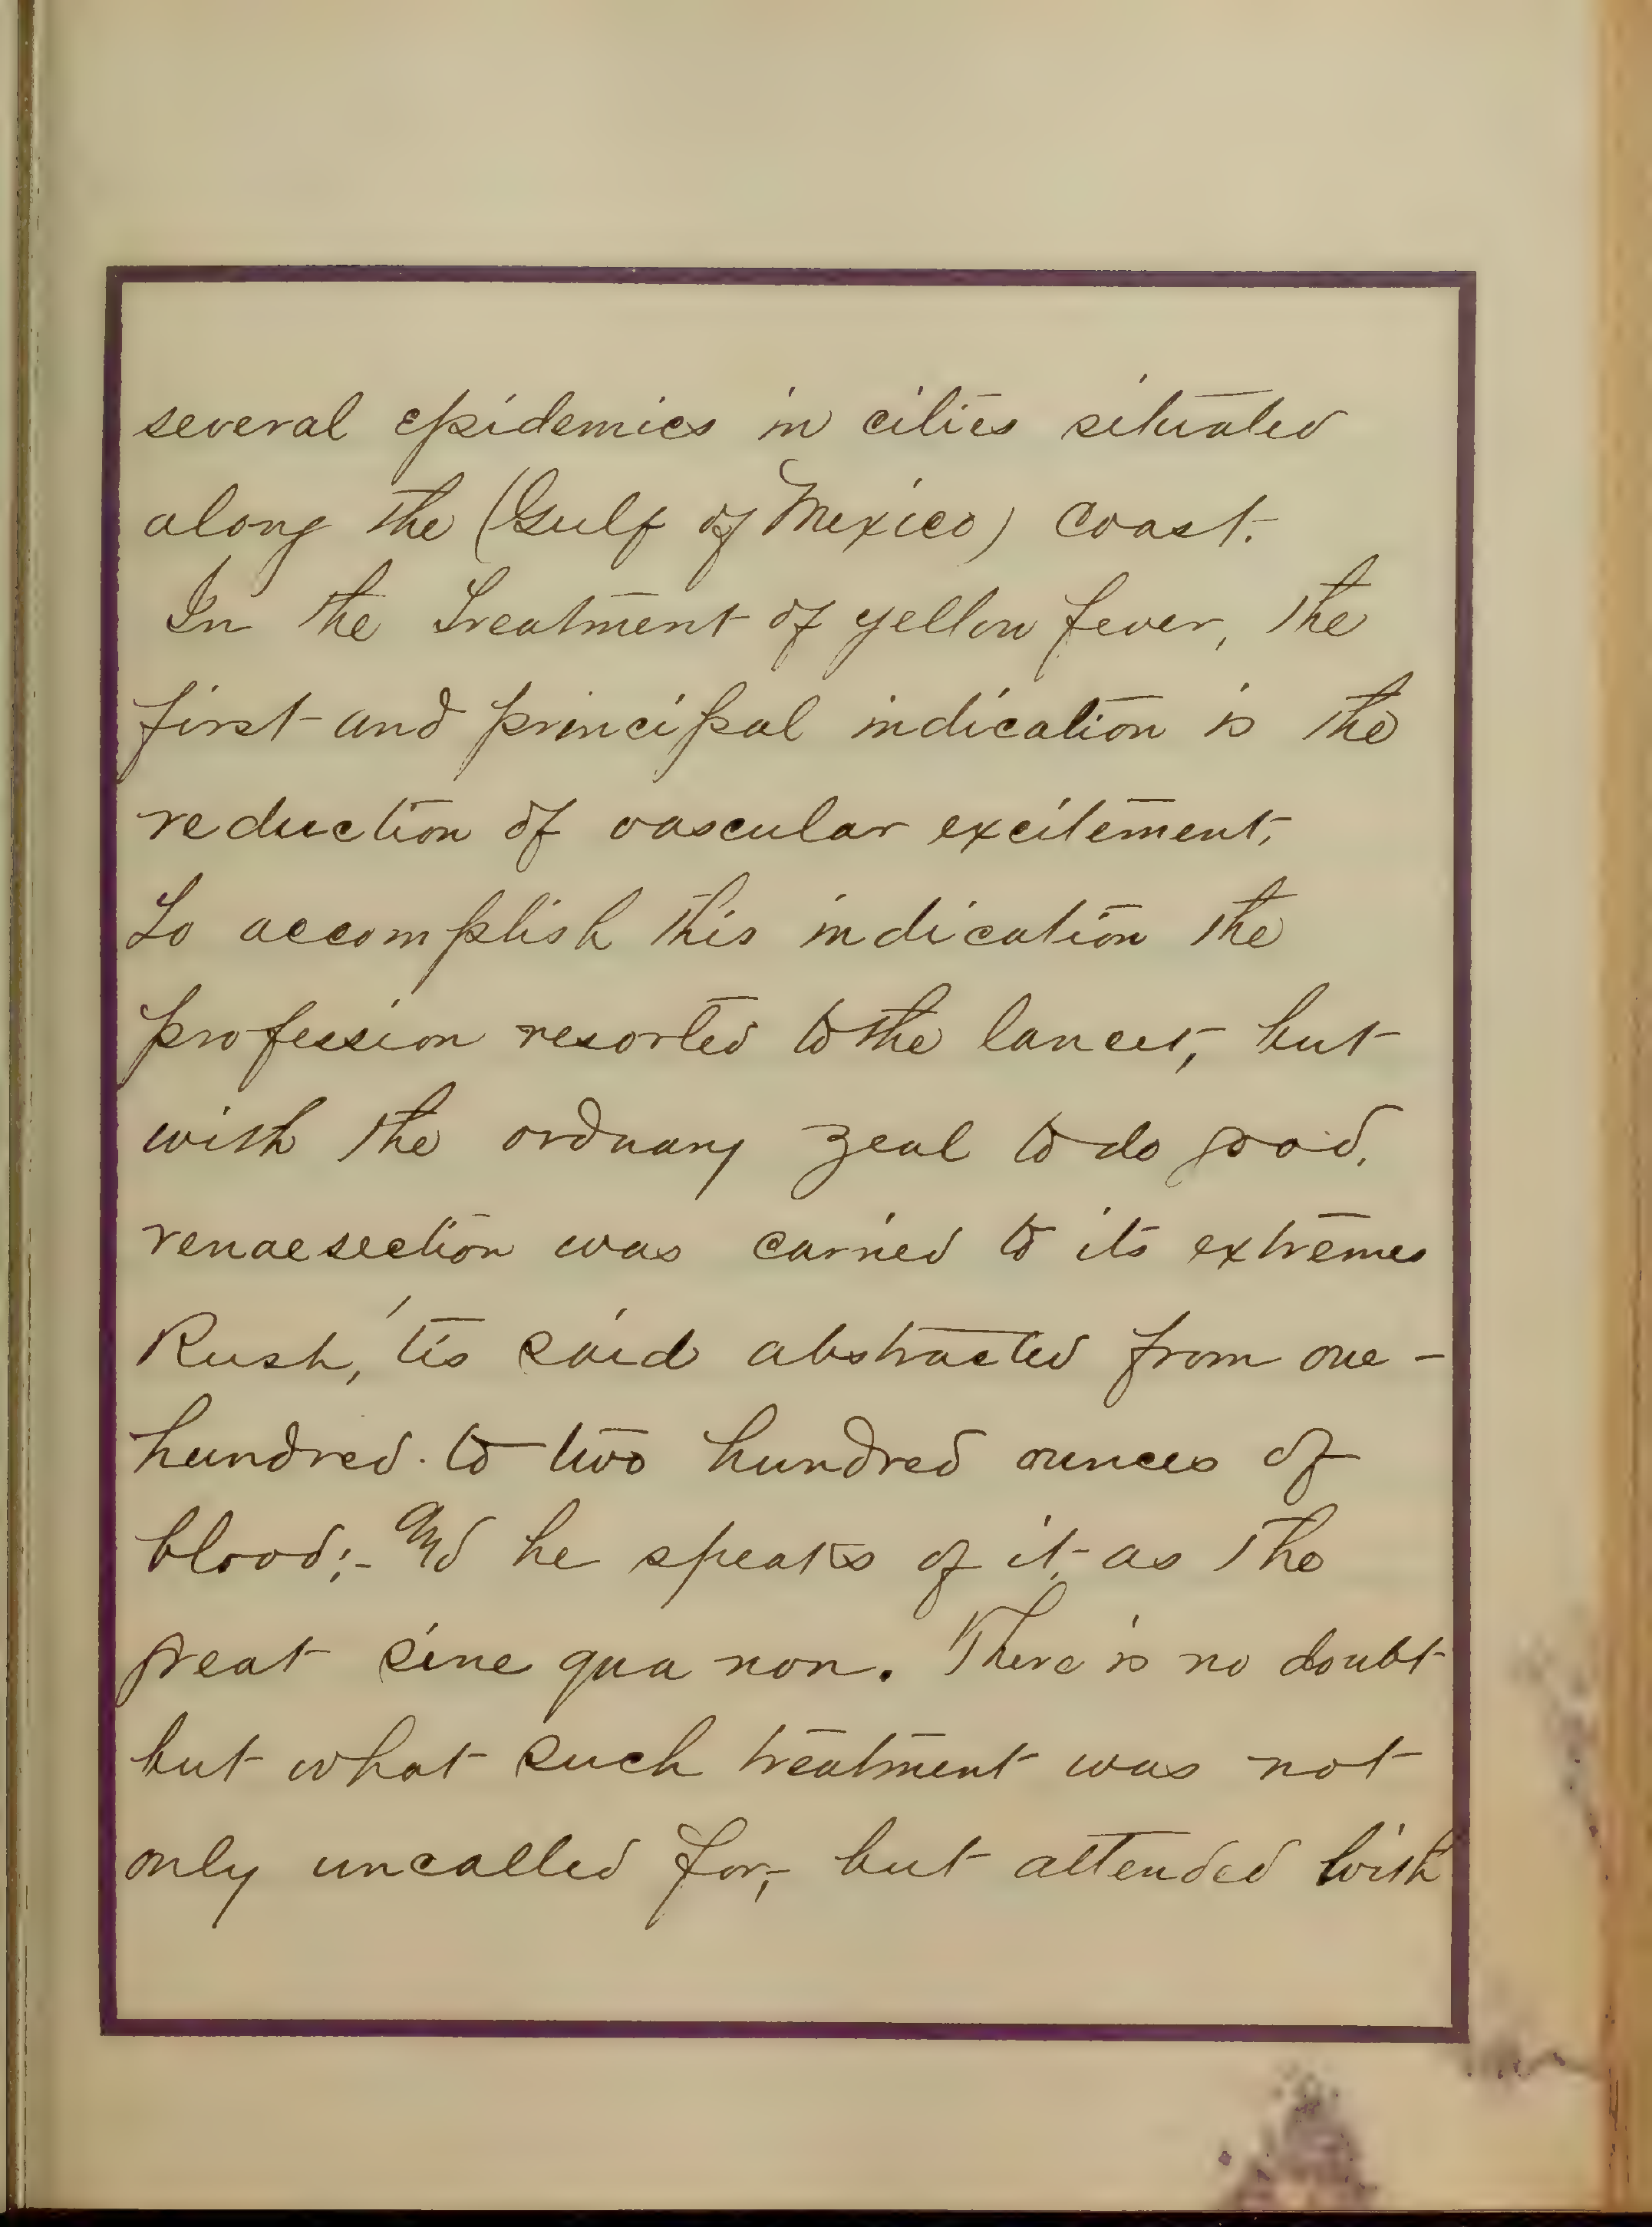 several epidemics in cities situated
along the (Gulf of Mexico) coast.
In the treatment of yellow fever, the
first and principal indication is the
reduction of vascular excitement,
To accomplish this indication the
profession resorted to the lancet, but
with the ordnary zeal to do good,
venaesection was carried to its extremes
Rush, 'tis said abstracted from one-
hundred to two hundred ounces of
blood;- And he speaks of it as the
great sine qua non. There is no doubt
but what such treatment was not
only uncalled for, but attended with